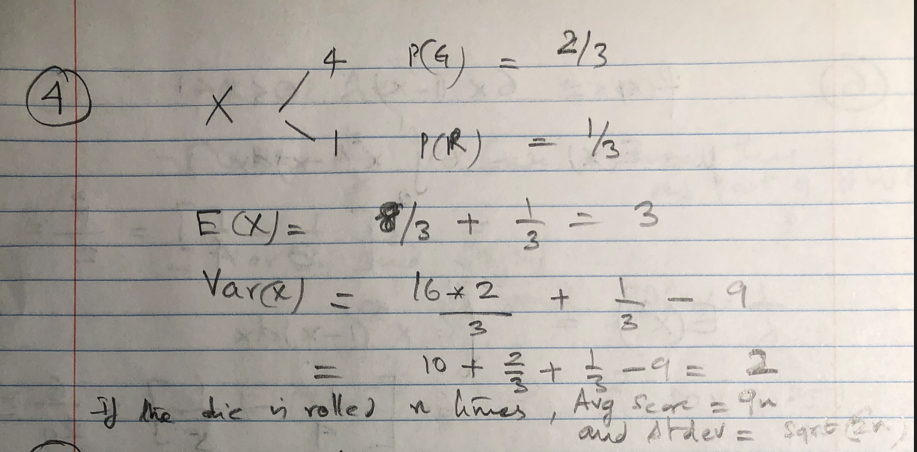 4 X 4 P(G) = 2/3
1 P(R) = 1/3
E(X) = 8/3 + 1/3 = 3
Var(X) = 16*2/3 + 1/3 - 9
= 10 + 2/3 + 1/3 - 9 = 2
If the die is rolled n times, Avg Score = 9n
and Stdev = sqrt(2n)